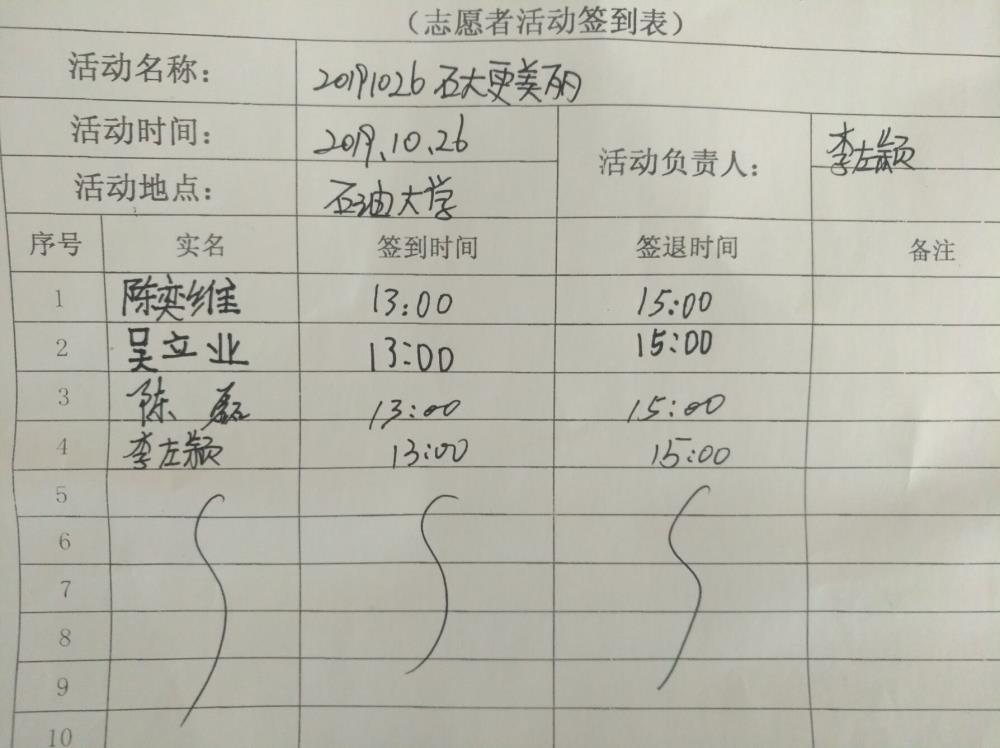 （志愿者活动签到表）
活动名称： 20191026 石大更美丽
活动时间： 2019.10.26 活动负责人： 李左颖
活动地点： 石油大学
序号 实名 签到时间 签退时间 备注
1 陈奕维 13:00 15:00
2 吴立业 13:00 15:00
3 陈磊 13:00 15:00
4 李左颖 13:00 15:00
5
6
7
8
9
10